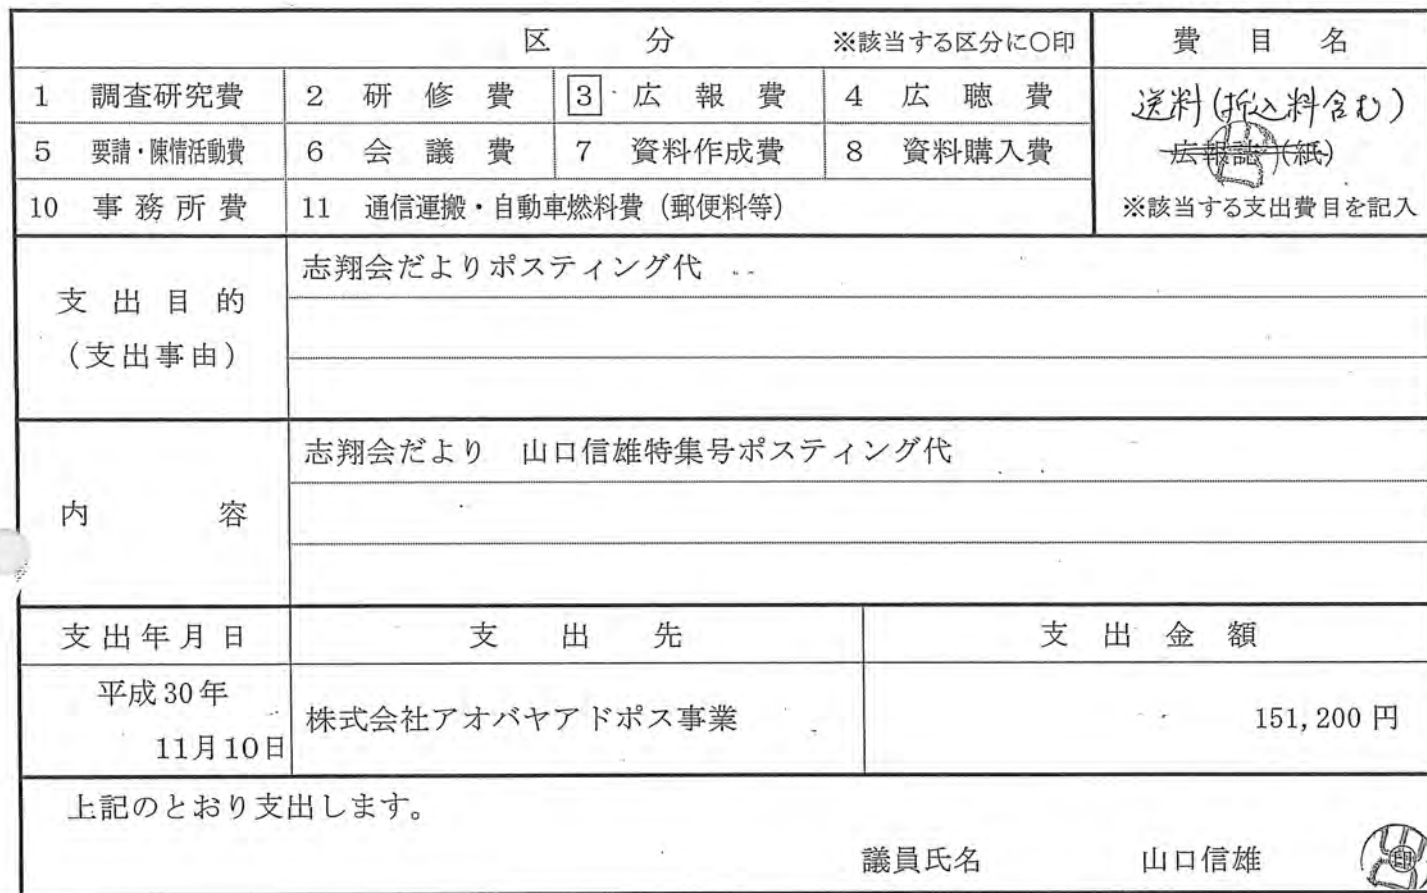 区 分 ※該当する区分に○印 費 目 名
1 調査研究費 2 研 修 費 3 広 報 費 4 広 聴 費
送料(折込料含む)
5 要請・陳情活動費 6 会 議 費 7 資料作成費 8 資料購入費
広報誌(紙)
10 事 務 所 費 11 通信運搬・自動車燃料費(郵便料等)
※該当する支出費目を記入
支 出 目 的
(支出事由)
志翔会だよりポスティング代
内 容
志翔会だより 山口信雄特集号ポスティング代
支 出 年 月 日 支 出 先 支 出 金 額
平成30年
11月10日
株式会社アオバヤアドポス事業
151,200 円
上記のとおり支出します。
議員氏名 山口信雄 印